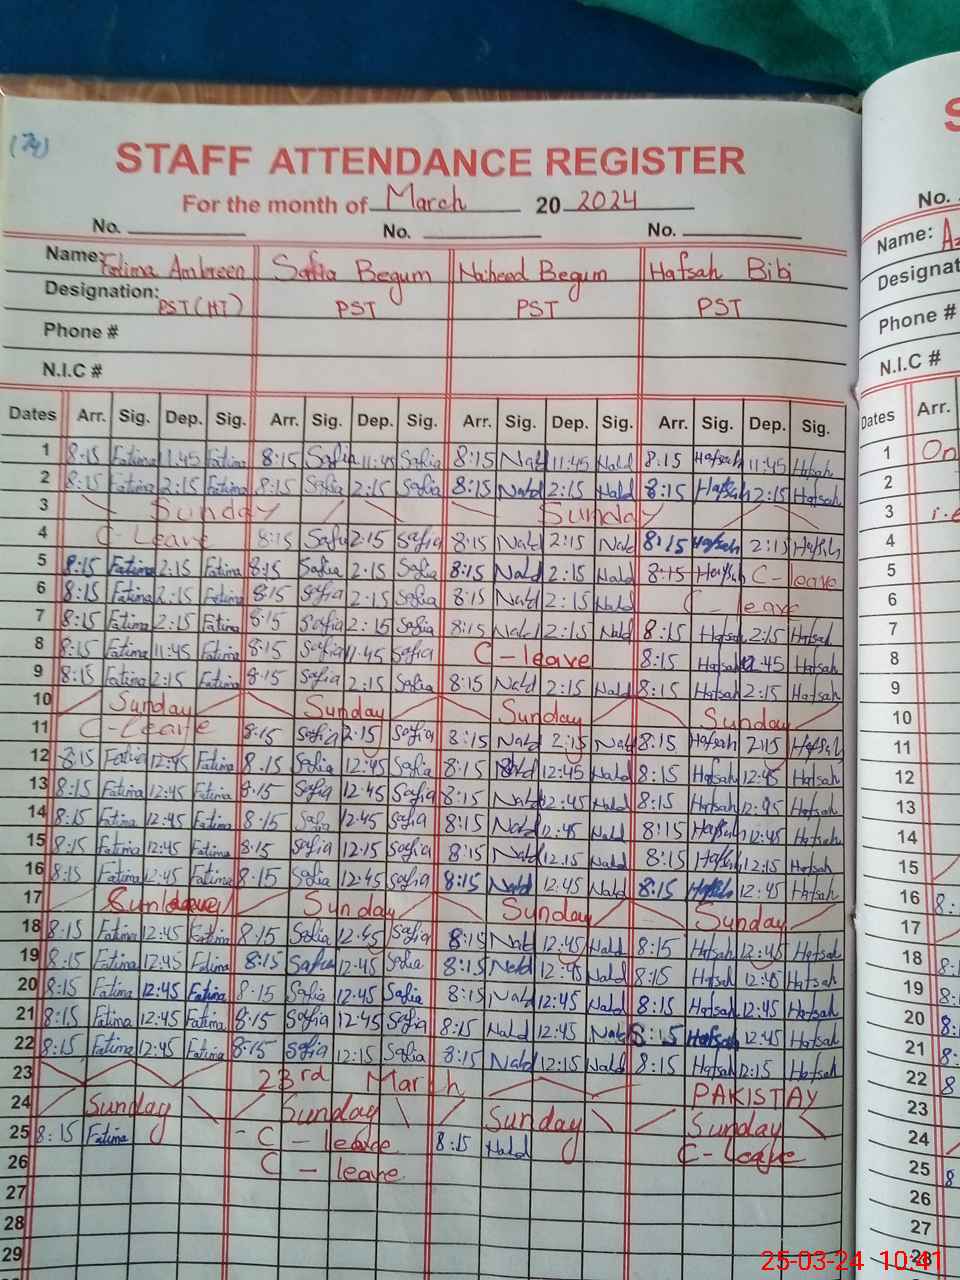 (74)
STAFF ATTENDANCE REGISTER
For the month of March 20 2024
No. No. No.
Name: Fatima Ambreen Safia Begum Naheed Begum Hafsah Bibi
Designation: PST (HT) PST PST PST
Phone #
N.I.C #
Dates Arr. Sig. Dep. Sig. Arr. Sig. Dep. Sig. Arr. Sig. Dep. Sig. Arr. Sig. Dep. Sig.
1 8:15 Fatima 11:45 Fatima 8:15 Safia 11:45 Safia 8:15 Nahd 11:45 Nahd 8:15 Hafsah 11:45 Hafsah
2 8:15 Fatima 2:15 Fatima 8:15 Safia 2:15 Safia 8:15 Nahd 2:15 Nahd 8:15 Hafsah 2:15 Hafsah
3 Sunday Sunday
4 C-Leave 8:15 Safia 2:15 Safia 8:15 Nahd 2:15 Nahd 8:15 Hafsah 2:15 Hafsah
5 8:15 Fatima 2:15 Fatima 8:15 Safia 2:15 Safia 8:15 Nahd 2:15 Nahd 8:15 Hafsah C-leave
6 8:15 Fatima 2:15 Fatima 8:15 Safia 2:15 Safia 8:15 Nahd 2:15 Nahd C-leave
7 8:15 Fatima 2:15 Fatima 8:15 Safia 2:15 Safia 8:15 Nahd 2:15 Nahd 8:15 Hafsah 2:15 Hafsah
8 8:15 Fatima 11:45 Fatima 8:15 Safia 11:45 Safia C-leave 8:15 Hafsah :45 Hafsah
9 8:15 Fatima 2:15 Fatima 8:15 Safia 2:15 Safia 8:15 Nahd 2:15 Nahd 8:15 Hafsah 2:15 Hafsah
10 Sunday Sunday Sunday Sunday
11 C-Leave 8:15 Safia 2:15 Safia 8:15 Nahd 2:15 Nahd 8:15 Hafsah 2:15 Hafsah
12 8:15 Fatima 12:45 Fatima 8:15 Safia 12:45 Safia 8:15 Nahd 12:45 Nahd 8:15 Hafsah 12:45 Hafsah
13 8:15 Fatima 12:45 Fatima 8:15 Safia 12:45 Safia 8:15 Nahd 12:45 Nahd 8:15 Hafsah 12:45 Hafsah
14 8:15 Fatima 12:45 Fatima 8:15 Safia 12:45 Safia 8:15 Nahd 12:45 Nahd 8:15 Hafsah 12:45 Hafsah
15 8:15 Fatima 12:45 Fatima 8:15 Safia 12:15 Safia 8:15 Nahd 12:15 Nahd 8:15 Hafsah 12:15 Hafsah
16 8:15 Fatima 12:45 Fatima 8:15 Safia 12:45 Safia 8:15 Nahd 12:45 Nahd 8:15 Hafsah 12:45 Hafsah
17 Sunday Sunday Sunday
18 8:15 Fatima 12:45 Fatima 8:15 Safia 12:45 Safia 8:15 Nahd 12:45 Nahd 8:15 Hafsah 12:45 Hafsah
19 8:15 Fatima 12:45 Fatima 8:15 Safia 12:45 Safia 8:15 Nahd 12:45 Nahd 8:15 Hafsah 12:45 Hafsah
20 8:15 Fatima 12:45 Fatima 8:15 Safia 12:45 Safia 8:15 Nahd 12:45 Nahd 8:15 Hafsah 12:45 Hafsah
21 8:15 Fatima 12:45 Fatima 8:15 Safia 12:45 Safia 8:15 Nahd 12:45 Nahd 8:15 Hafsah 12:45 Hafsah
22 8:15 Fatima 12:45 Fatima 8:15 Safia 12:15 Safia 8:15 Nahd 12:15 Nahd 8:15 Hafsah 12:15 Hafsah
23 23rd March PAKISTAY
24 Sunday Sunday Sunday Sunday
25 8:15 Fatima C-leave 8:15 Nahd C-leave
26 C-leave
27
28
29
No.
Name:
Phone #
N.I.C #
Dates Arr.
1
2
3
4
5
6
7
8
9
10
11
12
13
14
15
16 8:
17
18
19
20
21
22
23
24
25
26
27
28
25-03-24 10:41